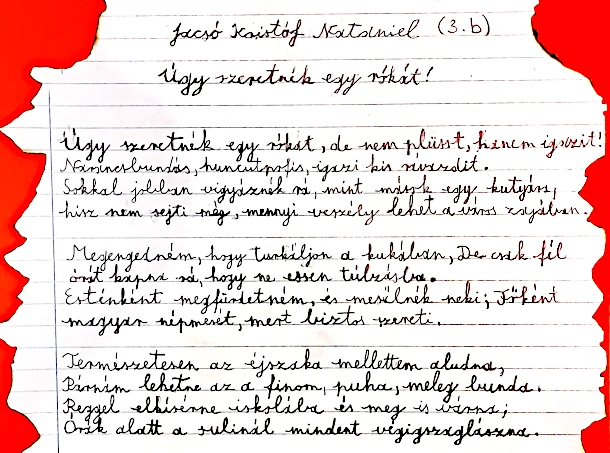 Jacsó Kristóf Nátániel (3.b)
Úgy szeretnék egy rókát!
Úgy szeretnék egy rókát, de nem plüsst, hanem igazit!
Narancsbundás, huncutpofis, igazi kis ravaszdit.
Sokkal jobban vigyáznék rá, mint mások egy kutyára,
hisz nem sejti meg, mennyi veszély lehet a város zajában.
Megengedném, hogy turkáljon a kukában, De csak fél
órát kapna rá, hogy ne essen túlzásba.
Esténként megfürdetném, és mesélnék neki; Főként
magyar népmesét, mert biztos szereti.
Természetesen az éjszaka mellettem aludna,
Párnám lehetne az a finom, puha, meleg bunda.
Reggel elkísérne iskolába és meg is várna;
Órák alatt a sulinál mindent végigszaglászna.